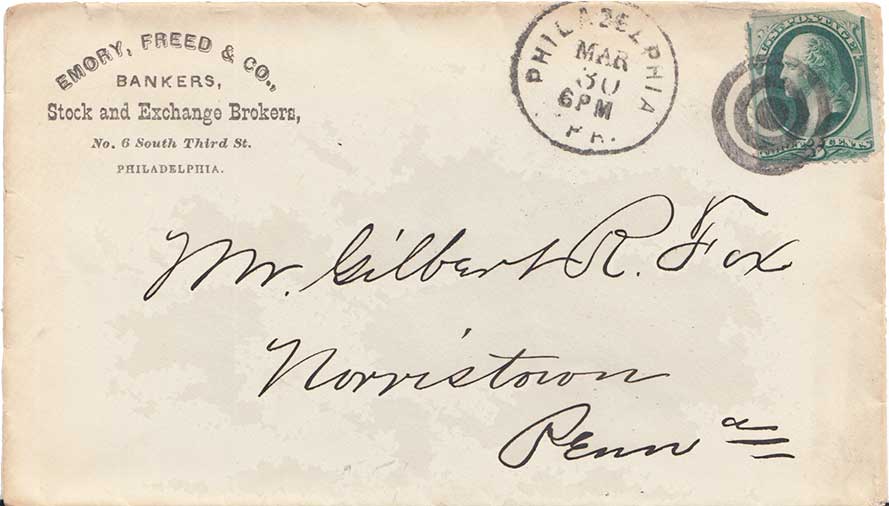 EMORY, FREED & CO.,
BANKERS,
Stock and Exchange Brokers,
No. 6 South Third St.
PHILADELPHIA.
PHILADELPHIA
MAR
30
6PM
PA.
U.S. POSTAGE
CENTS
Mr. Gilbert R. Fox
Norristown
Penna